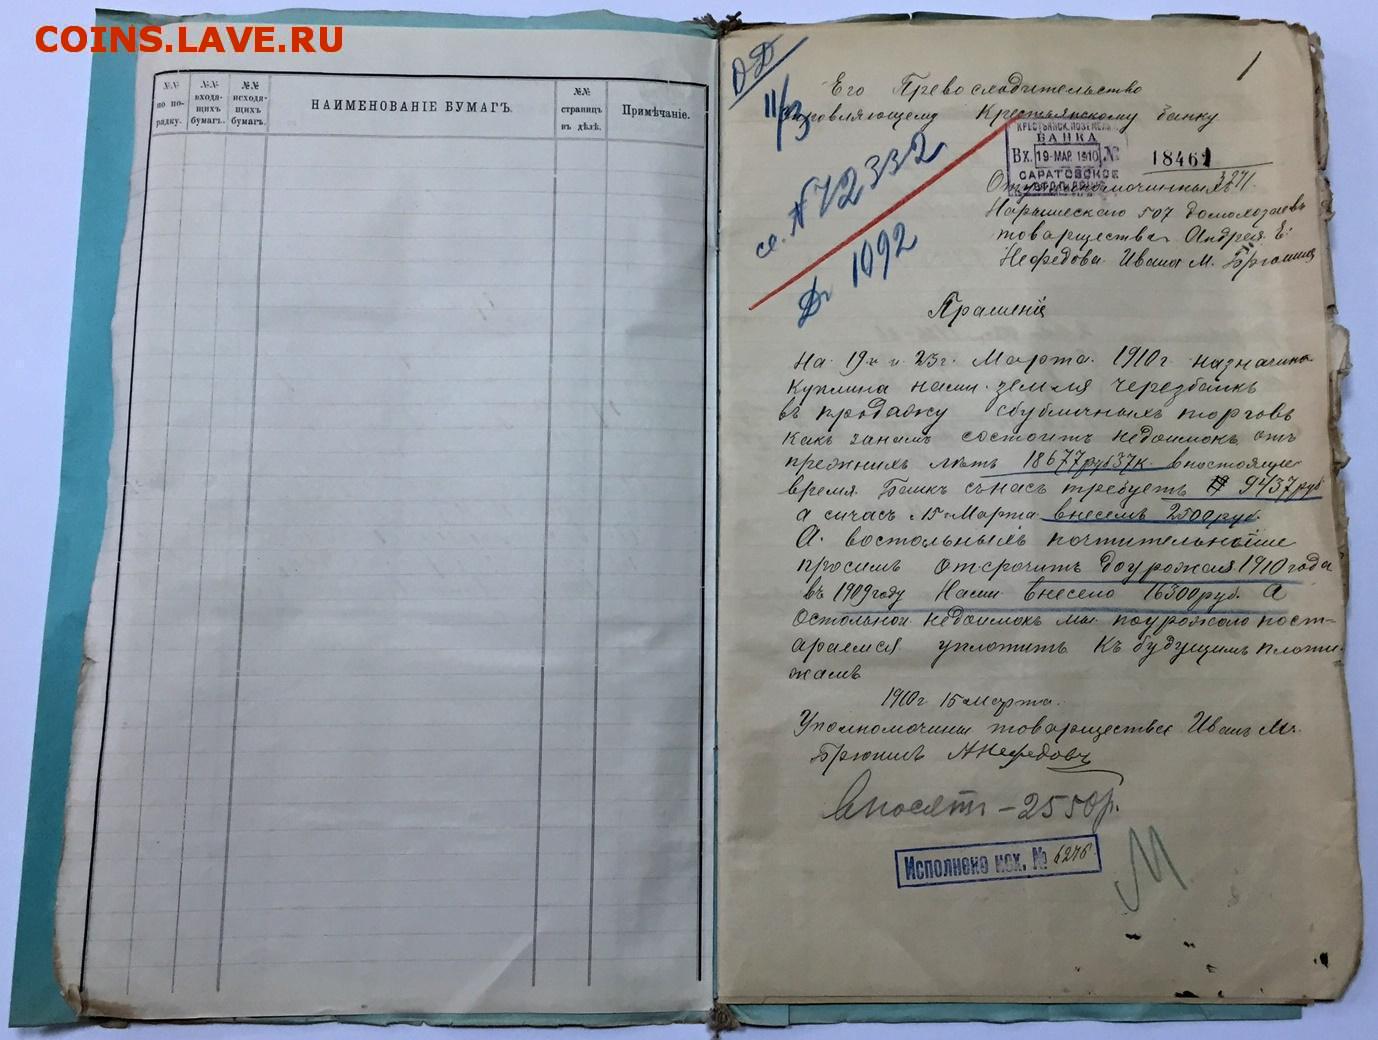 COINS.LAVE.RU
№№ по порядку.
№№ входящихъ бумагъ.
№№ исходящихъ бумагъ.
НАИМЕНОВАНІЕ БУМАГЪ.
№№ страницъ въ дѣлѣ.
Примѣчаніе.
1
11/3
Его Превосходительство
Крестьянскому банку
БАНКА
Вх. 19 МАР. 1910 № 18461
САРАТОВСКОЕ
3271
507 домохозяевъ
товарищества Андрея Е.
Нефедова Ивана М.
св. № 72332
Дѣ 1092
Прашеніе
На 19 и 23 г. Марта 1910 г. назначина
Куплина нами земля черезбанкъ
въ продажу спубличныхъ торговъ
какъ занамъ состоитъ недоимокъ отъ
прежнихъ лѣтъ 18677 руб 37 к. внастоящие
время Банкъ сънасъ требуетъ 9437 руб
а сичасъ 15 Марта внесемъ 2500 руб.
А. востольныхъ почтительнейше
просимъ отсрочить доурожая 1910 года
въ 1909 году Нами внесено 16300 руб. А
Остольной недоимокъ мы поурожаю пост-
араемся уплотить Къ будущимъ плоти-
жамъ
1910 г 15 Марта.
Уполномочины товарищества Иванъ М.
А Нефедовъ
Вносятъ – 2550 р.
Исполнено исх. № 6276
М